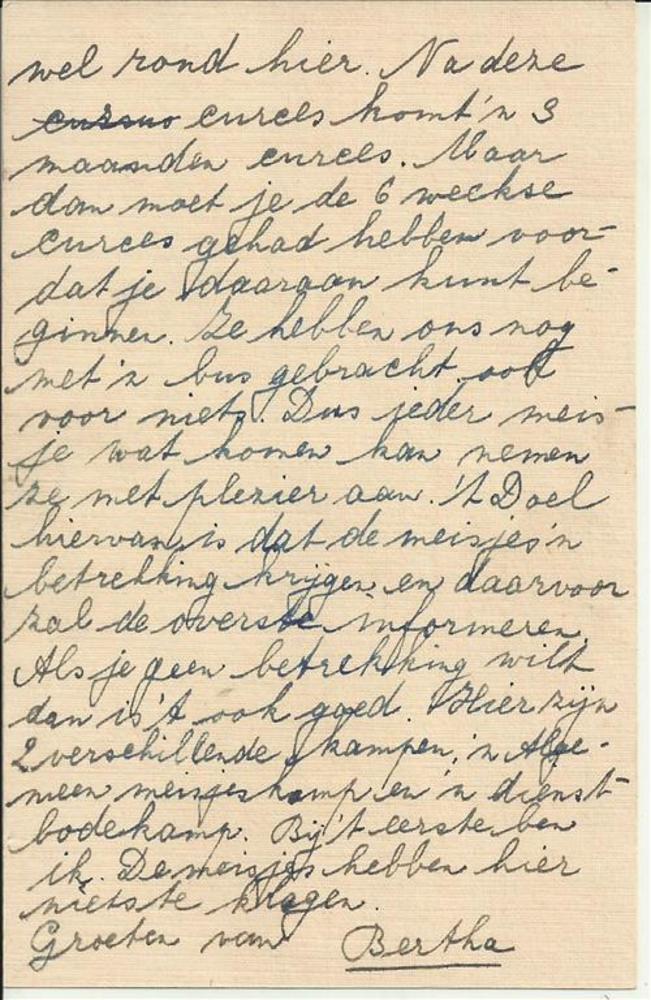 wel rond hier. Na deze
cursus curces komt 'n 3
maanden curces. Maar
dan moet je de 6 weekse
curces gehad hebben voor-
dat je daaraan kunt be-
ginnen. Ze hebben ons nog
met 'n bus gebracht ook
voor niets. Dus ieder meis-
je wat komen kan nemen
ze met plezier aan. 't Doel
hiervan is dat de meisjes 'n
betrekking krijgen en daarvoor
zal de overste informeren.
Als je geen betrekking wilt
dan is 't ook goed. Hier zijn
2 verschillende kampen, 'n Alge-
meen meisjeskamp en 'n dienst-
bodekamp. Bij 't eerste ben
ik. De meisjes hebben hier
niets te klagen.
Groeten van Bertha